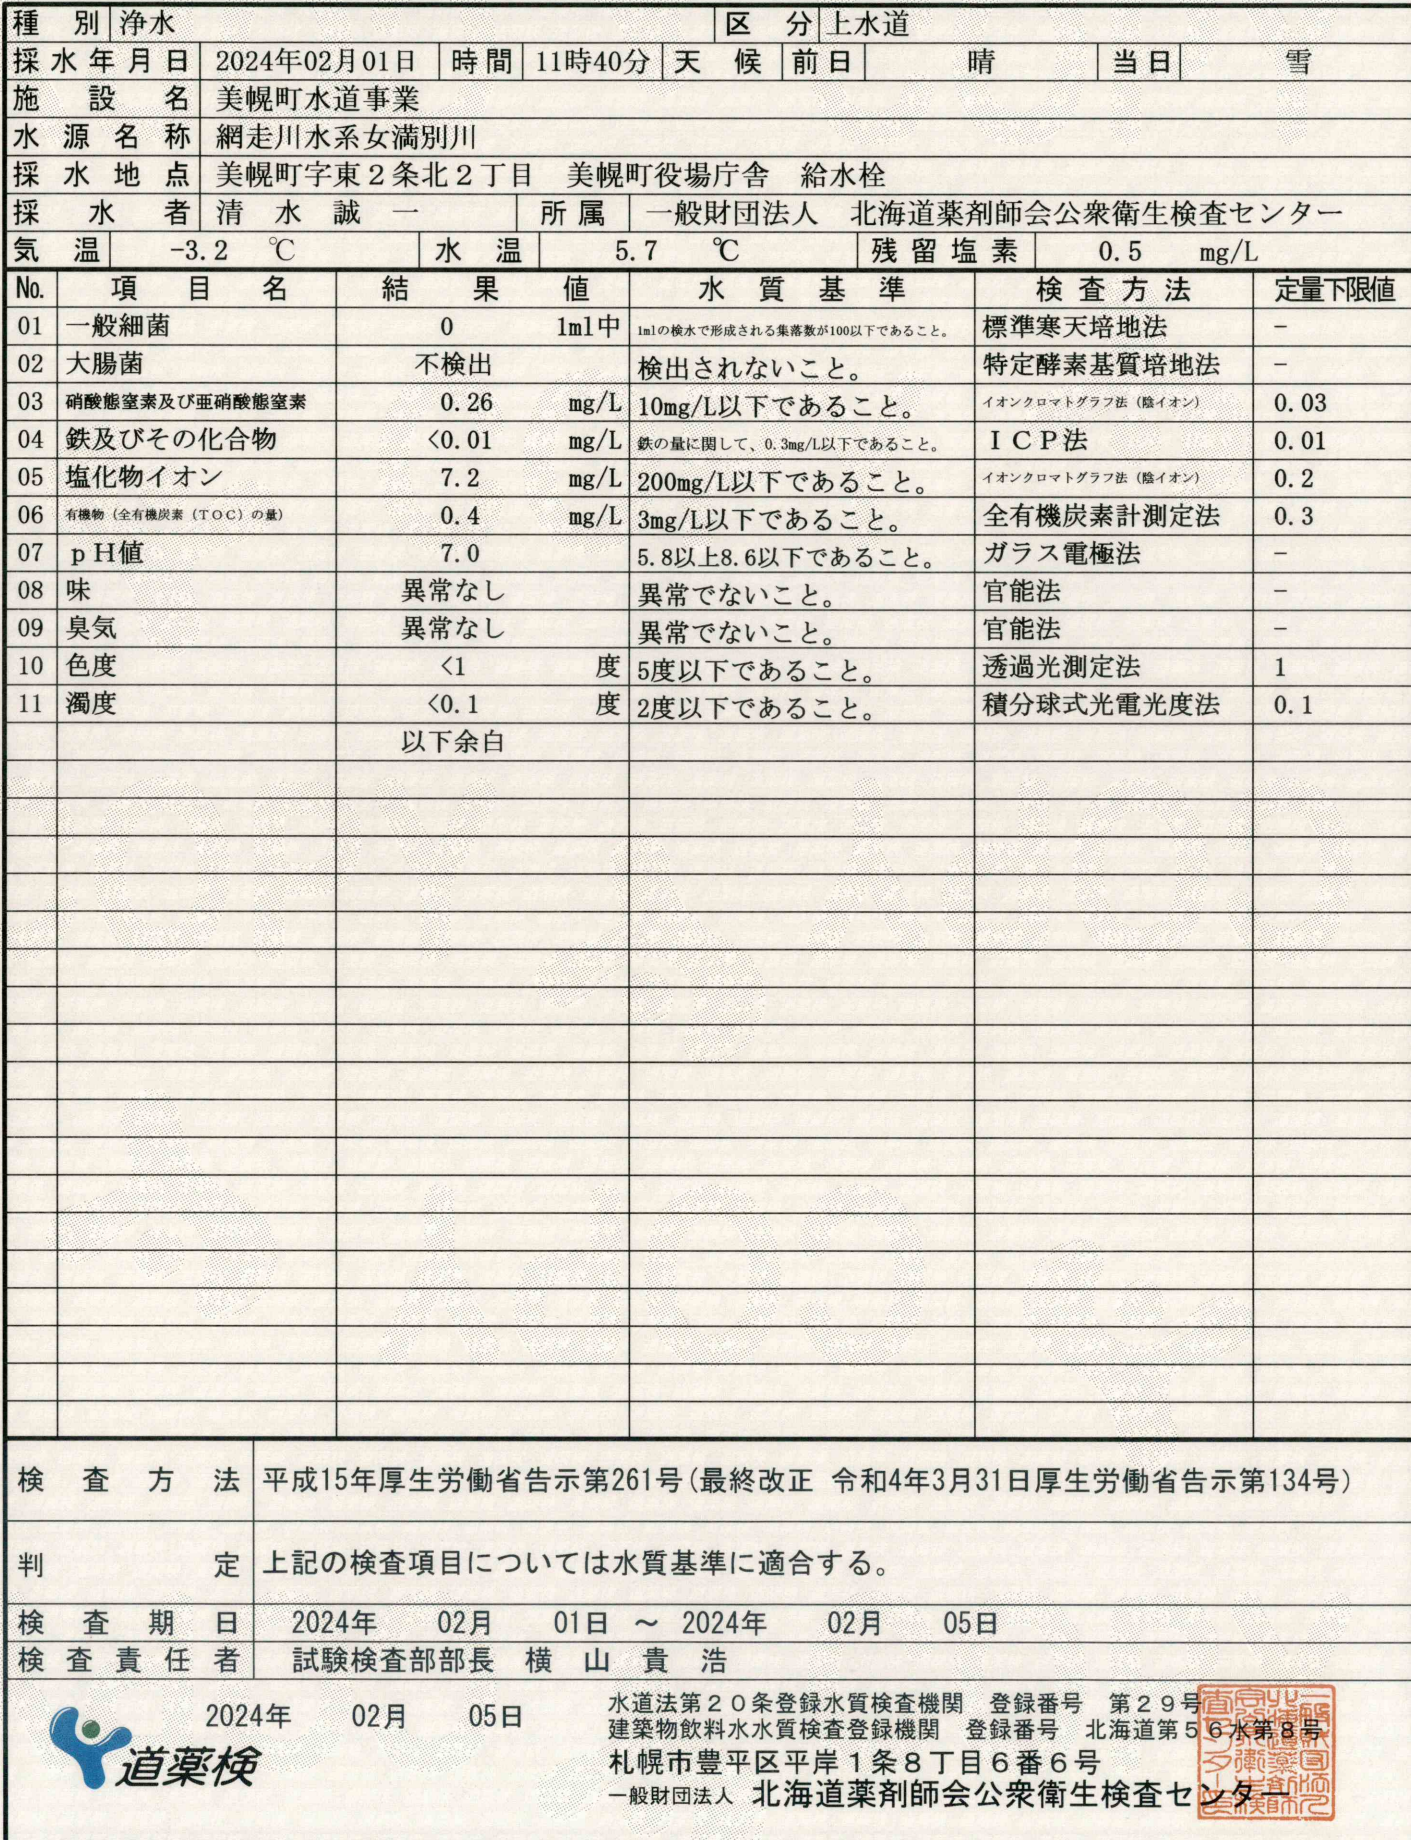 種別 浄水 区分 上水道
採水年月日 2024年02月01日 時間 11時40分 天候 前日 晴 当日 雪
施設名 美幌町水道事業
水源名称 網走川水系女満別川
採水地点 美幌町字東2条北2丁目 美幌町役場庁舎 給水栓
採水者 清水誠一 所属 一般財団法人 北海道薬剤師会公衆衛生検査センター
気温 -3.2 ℃ 水温 5.7 ℃ 残留塩素 0.5 mg/L
No. 項目名 結果値 水質基準 検査方法 定量下限値
01 一般細菌 0 1ml中 1mlの検水で形成される集落数が100以下であること。 標準寒天培地法 −
02 大腸菌 不検出 検出されないこと。 特定酵素基質培地法 −
03 硝酸態窒素及び亜硝酸態窒素 0.26 mg/L 10mg/L以下であること。 イオンクロマトグラフ法（陰イオン） 0.03
04 鉄及びその化合物 <0.01 mg/L 鉄の量に関して、0.3mg/L以下であること。 ＩＣＰ法 0.01
05 塩化物イオン 7.2 mg/L 200mg/L以下であること。 イオンクロマトグラフ法（陰イオン） 0.2
06 有機物（全有機炭素（ＴＯＣ）の量） 0.4 mg/L 3mg/L以下であること。 全有機炭素計測定法 0.3
07 ｐＨ値 7.0 5.8以上8.6以下であること。 ガラス電極法 −
08 味 異常なし 異常でないこと。 官能法 −
09 臭気 異常なし 異常でないこと。 官能法 −
10 色度 <1 度 5度以下であること。 透過光測定法 1
11 濁度 <0.1 度 2度以下であること。 積分球式光電光度法 0.1
以下余白
検査方法 平成15年厚生労働省告示第261号(最終改正 令和4年3月31日厚生労働省告示第134号)
判定 上記の検査項目については水質基準に適合する。
検査期日 2024年 02月 01日 ～ 2024年 02月 05日
検査責任者 試験検査部部長 横山貴浩
2024年 02月 05日
水道法第２０条登録水質検査機関 登録番号 第２９号
建築物飲料水水質検査登録機関 登録番号 北海道第５６水第８号
札幌市豊平区平岸１条８丁目６番６号
一般財団法人 北海道薬剤師会公衆衛生検査センター
道薬検